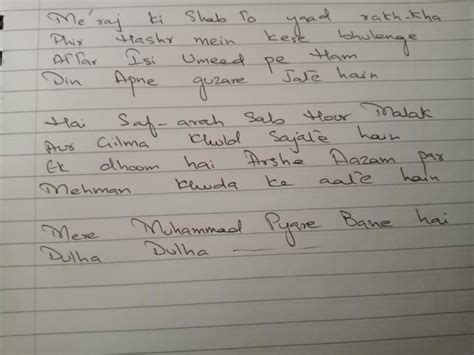 Me'raj ki Shab To yaad rakh-kha
Phir Hashr mein kese bhulenge
Attar Isi Umeed pe Ham
Din Apne guzare Jate hain
Hai Saf-arah Sab Hoor Malak
Aur Gilma Khuld Sajate hain
Ek dhoom hai Arshe Aazam par
Mehman Khuda ke aate hain
Mere Muhammad Pyare Bane hai
Dulha Dulha